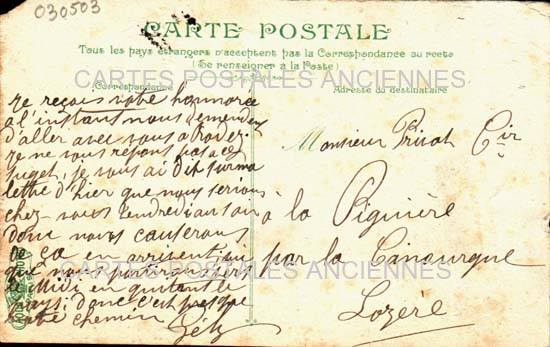 030503
CARTE POSTALE
Tous les pays étrangers n'acceptent pas la Correspondance au recto
(Se renseigner à la Poste)
CARTES POSTALES ANCIENNES
Correspondance
Adresse du destinataire
Je reçois votre honnorée
a l'instant nous demandant
d'aller avec vous a Rodez.
Je ne vous répons pas a ce
sujet, je vous ai dit sur ma
lettre d'hier que nous serions
chez vous vendredi au soir
donc nous causerons
de ça en arrivant
que nous partirons vers
le Midi en quitant le
pays, donc c'est presque
notre chemin
Monsieur Privat Cir
à la Piguière
par la Canourgue
Lozère
CARTES POSTALES ANCIENNES